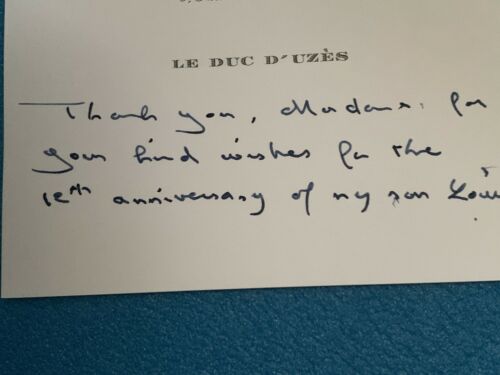 LE DUC D'UZÈS
Thank you, Madame, for
your kind wishes for the
12th anniversary of my son